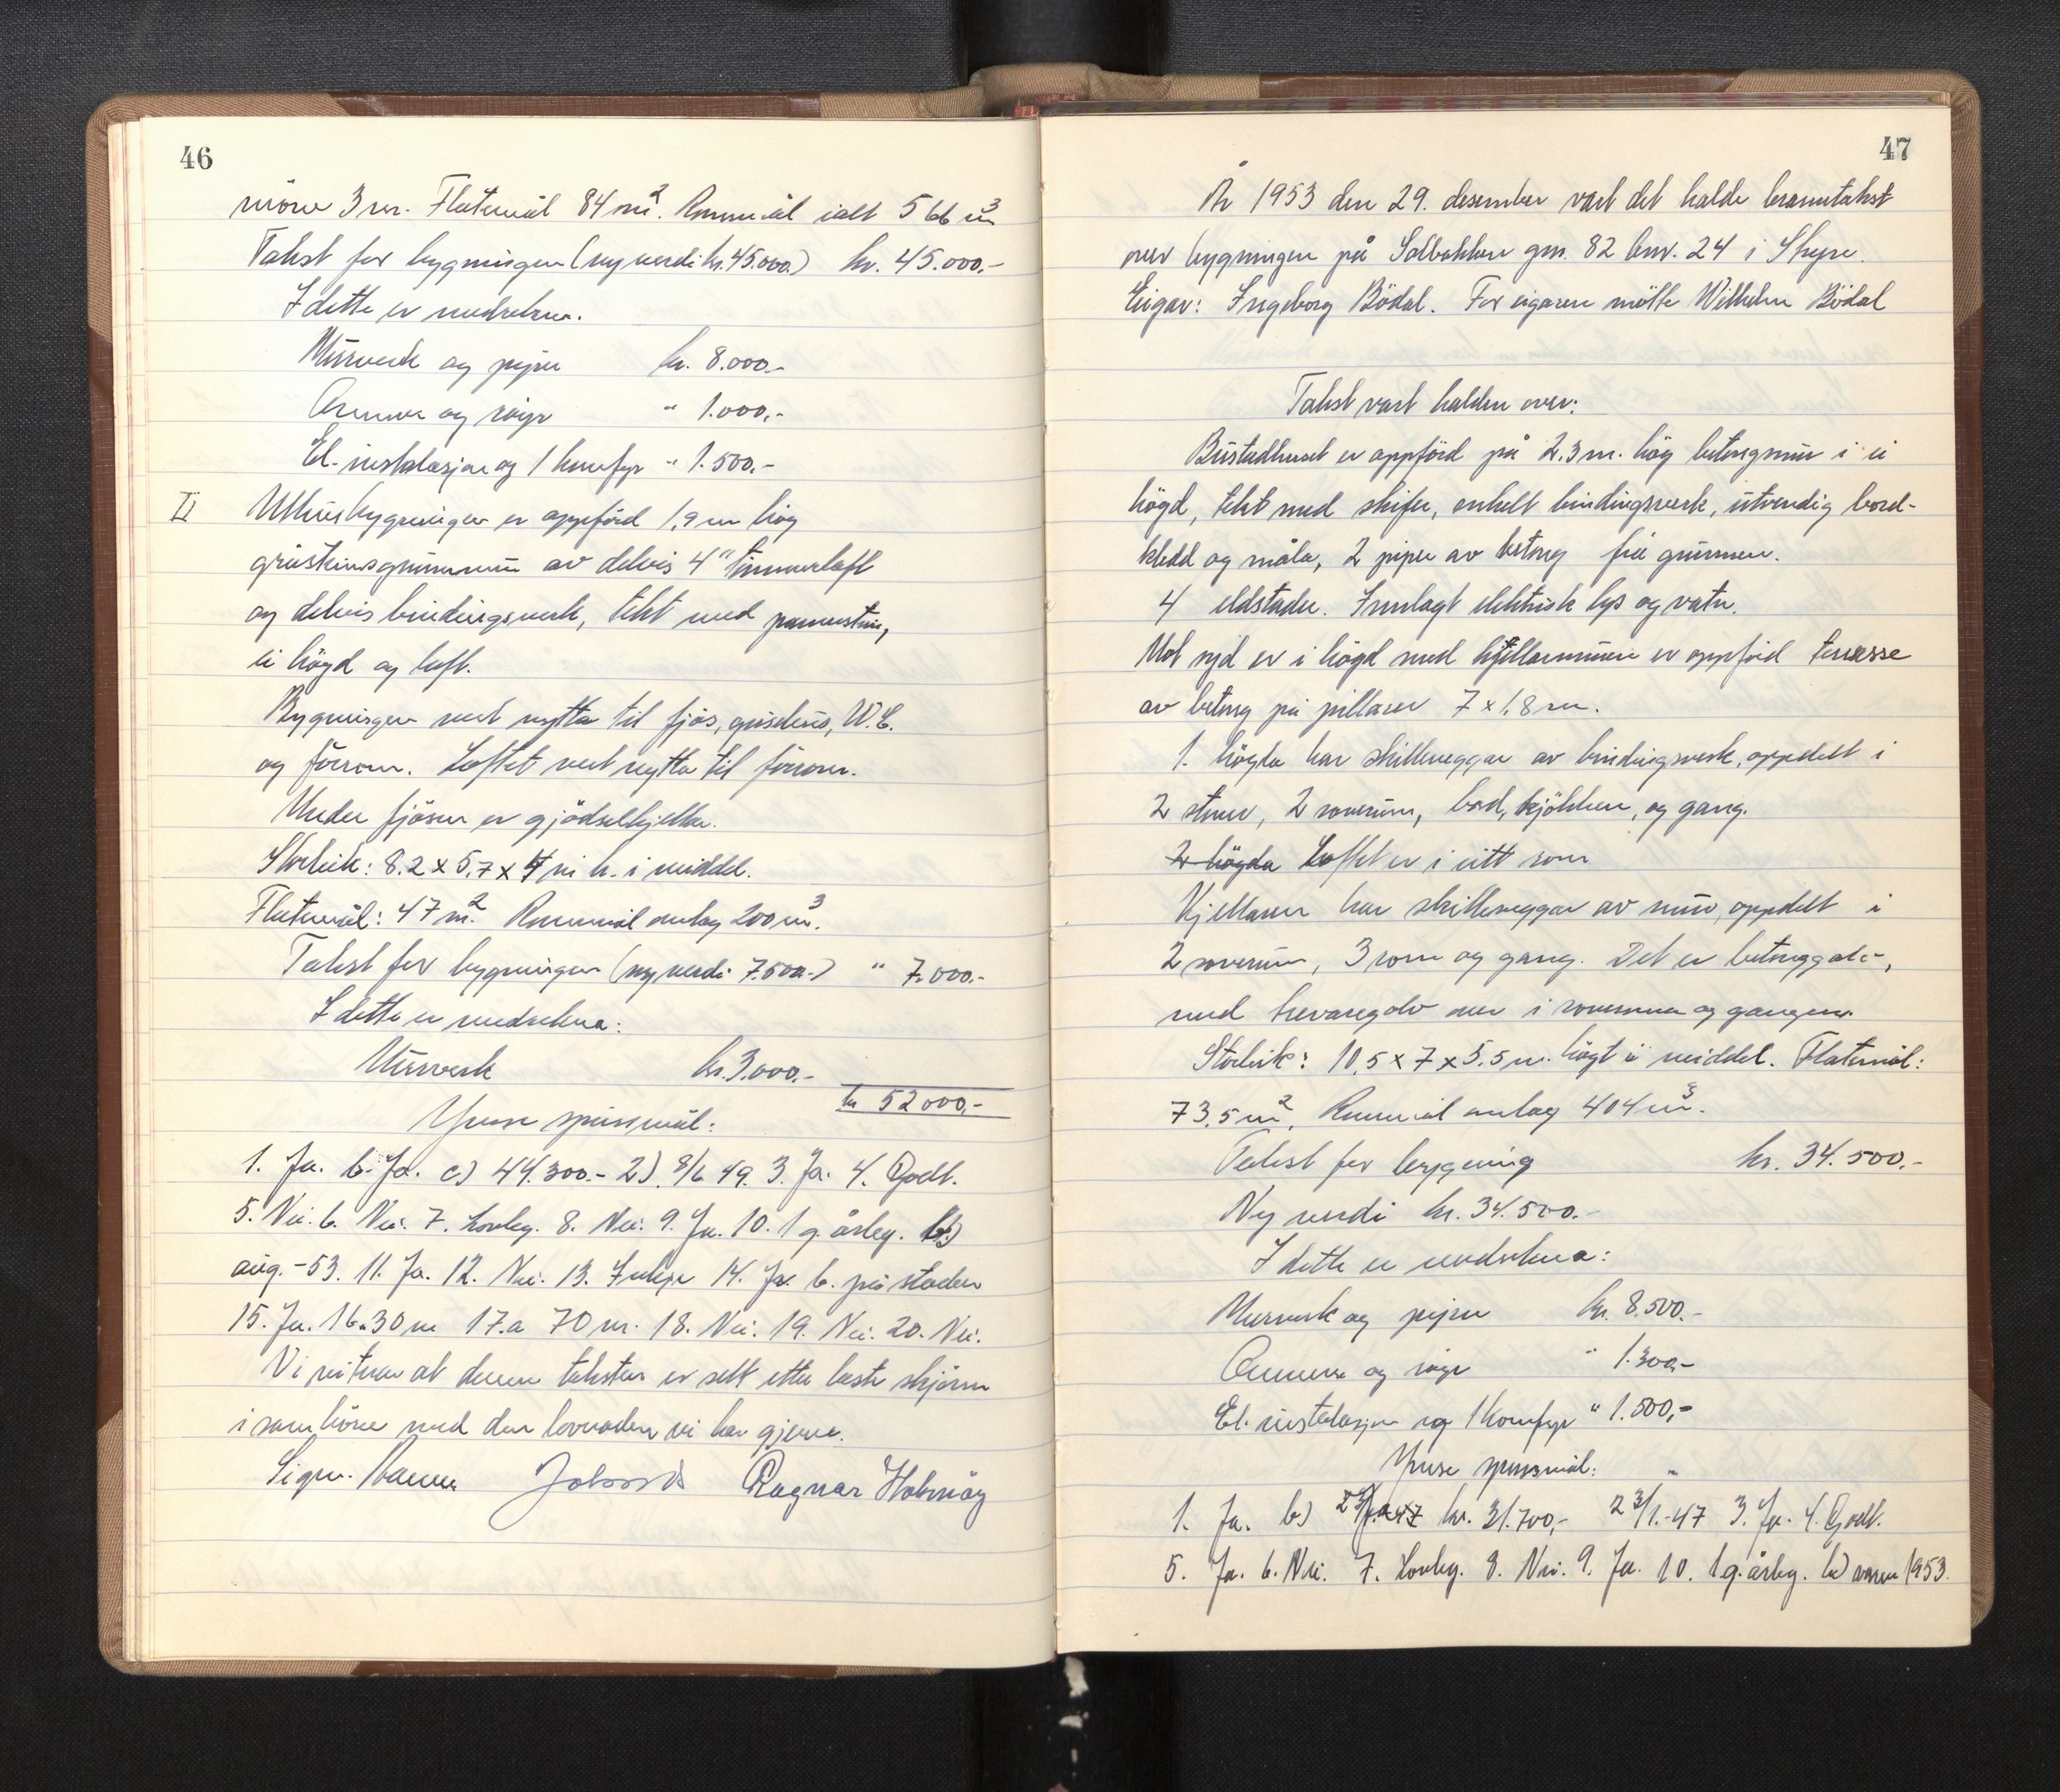 46
møne 3 m. Flatemål 84 m². Rommål ialt 566 m³
Takst for bygningen (ny verdi kr. 45.000.) kr. 45.000.-
I dette er medrekna.
Mürverk og pipe kr. 8.000.-
Omnar og røyr " 1.000,-
El. installasjon og 1 komfyr " 1.500.-
II Uthusbygningen er oppförd 1,9 m høg
gråsteinsgrunnmur av delvis 4" tømmerlaft
og delvis bindingsverk, tekt med pannestein,
ei högd og loft.
Bygningen vert nytta til fjös, grisehus, W.C.
og fôrrom. Loftet vert nytta til fôrrom.
Under fjösen er gjödselkjellar.
Storleik: 8.2 x 5,7 x 4 m h. i middel.
Flatemål: 47 m². Rommål omlag 200 m³.
Takst for bygningen (ny verdi 7.500.-) " 7.000.-
I dette er medrekna:
Mürverk kr. 3.000.-
kr 52000,-
Ymse spursmål:
1. Ja. b. Ja. c) 44.300.- 2). 8/6 49. 3. Ja. 4. Godt.
5. Nei. 6. Nei. 7. Lovleg. 8. Nei. 9. Ja. 10. 1 g. årleg. b)
aug.-53. 11. Ja. 12. Nei. 13. Inkje 14. Ja. b. på staden
15. Ja. 16.a 30 m 17.a 70 m. 18. Nei. 19. Nei. 20. Nei.
Vi vitnar at denne taksten er sett etter beste skjønn
i samhöve med den lovnaden vi har gjeve.
Sigm. Ragnar Holmöy
47
År 1953 den 29. desember vart det halde branntakst
over bygningen på Solbakken gnr. 82 bnr. 24 i Stryn.
Eigar: Ingeborg Bödal. For eigaren mötte Wilhelm Bödal
Takst vart halden over:
Büstadhuset er oppförd på 2.3 m. høg betongmür i ei
högd, tekt med skifer, enkelt bindingsverk, utvendig bord-
kledd og måla, 2 piper av betong frå grunnen.
4 eldstader. Innlagt elektrisk lys og vatn.
Mot syd er i högd med kjellarmuren er oppförd terrasse
av betong på pillarer 7 x 1,8 m.
1. högda har skilleveggar av bindingsverk, oppdelt i
2 stover, 2 soverum, bad, kjökken, og gang.
2 högda Loftet er i eitt rom
Kjellaren har skilleveggar av mür, oppdelt i
2 soverum, 3 rom og gang. Det er betonggolv,
med trevaregolv over i soveromma og gangen.
Storleik: 10,5 x 7 x 5.5 m. högt i middel. Flatemål:
73,5 m². Rommål omlag 404 m³.
Takst for bygning kr. 34.500.-
Ny verdi kr. 34.500.-
I dette er medrekna:
Murverk og pipe kr. 8.500.-
Omnar og røyr " 1.300,-
El. installasjon og 1 komfyr " 1.500,-
Ymse spursmål:
1. Ja. b) kr. 31.700,- 2 3/1.-47 3. Ja. 4. Godt.
5. Ja. 6. Nei. 7. Lovleg. 8. Nei. 9. Ja. 10. 1 g. årleg. b) 1953.